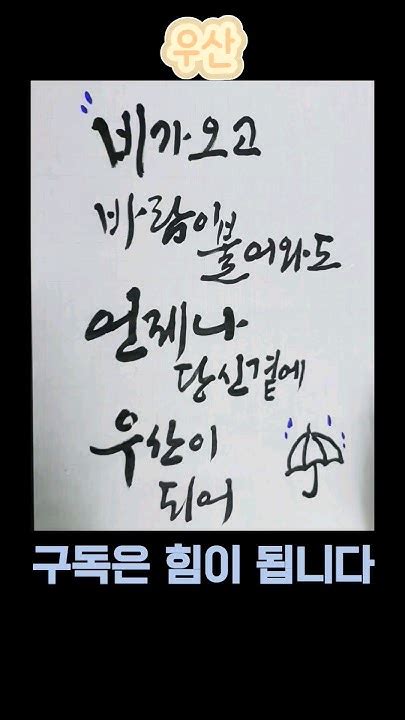 우산
비가오고
바람이
불어와도
언제나
당신곁에
우산이
되어
구독은 힘이 됩니다